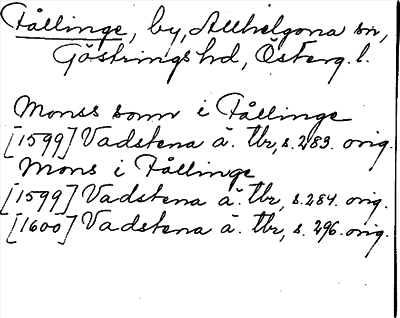 Fållinge, by, Allhelgona sn,
Göstrings hd, Österg. l.
Monss sonn i Fållinge
[1599] Vadstena ä. tbr, s. 283. orig.
Mons i Fållinge
[1599] Vadstena ä. tbr, s. 284. orig.
[1600] Vadstena ä. tbr, s. 296. orig.